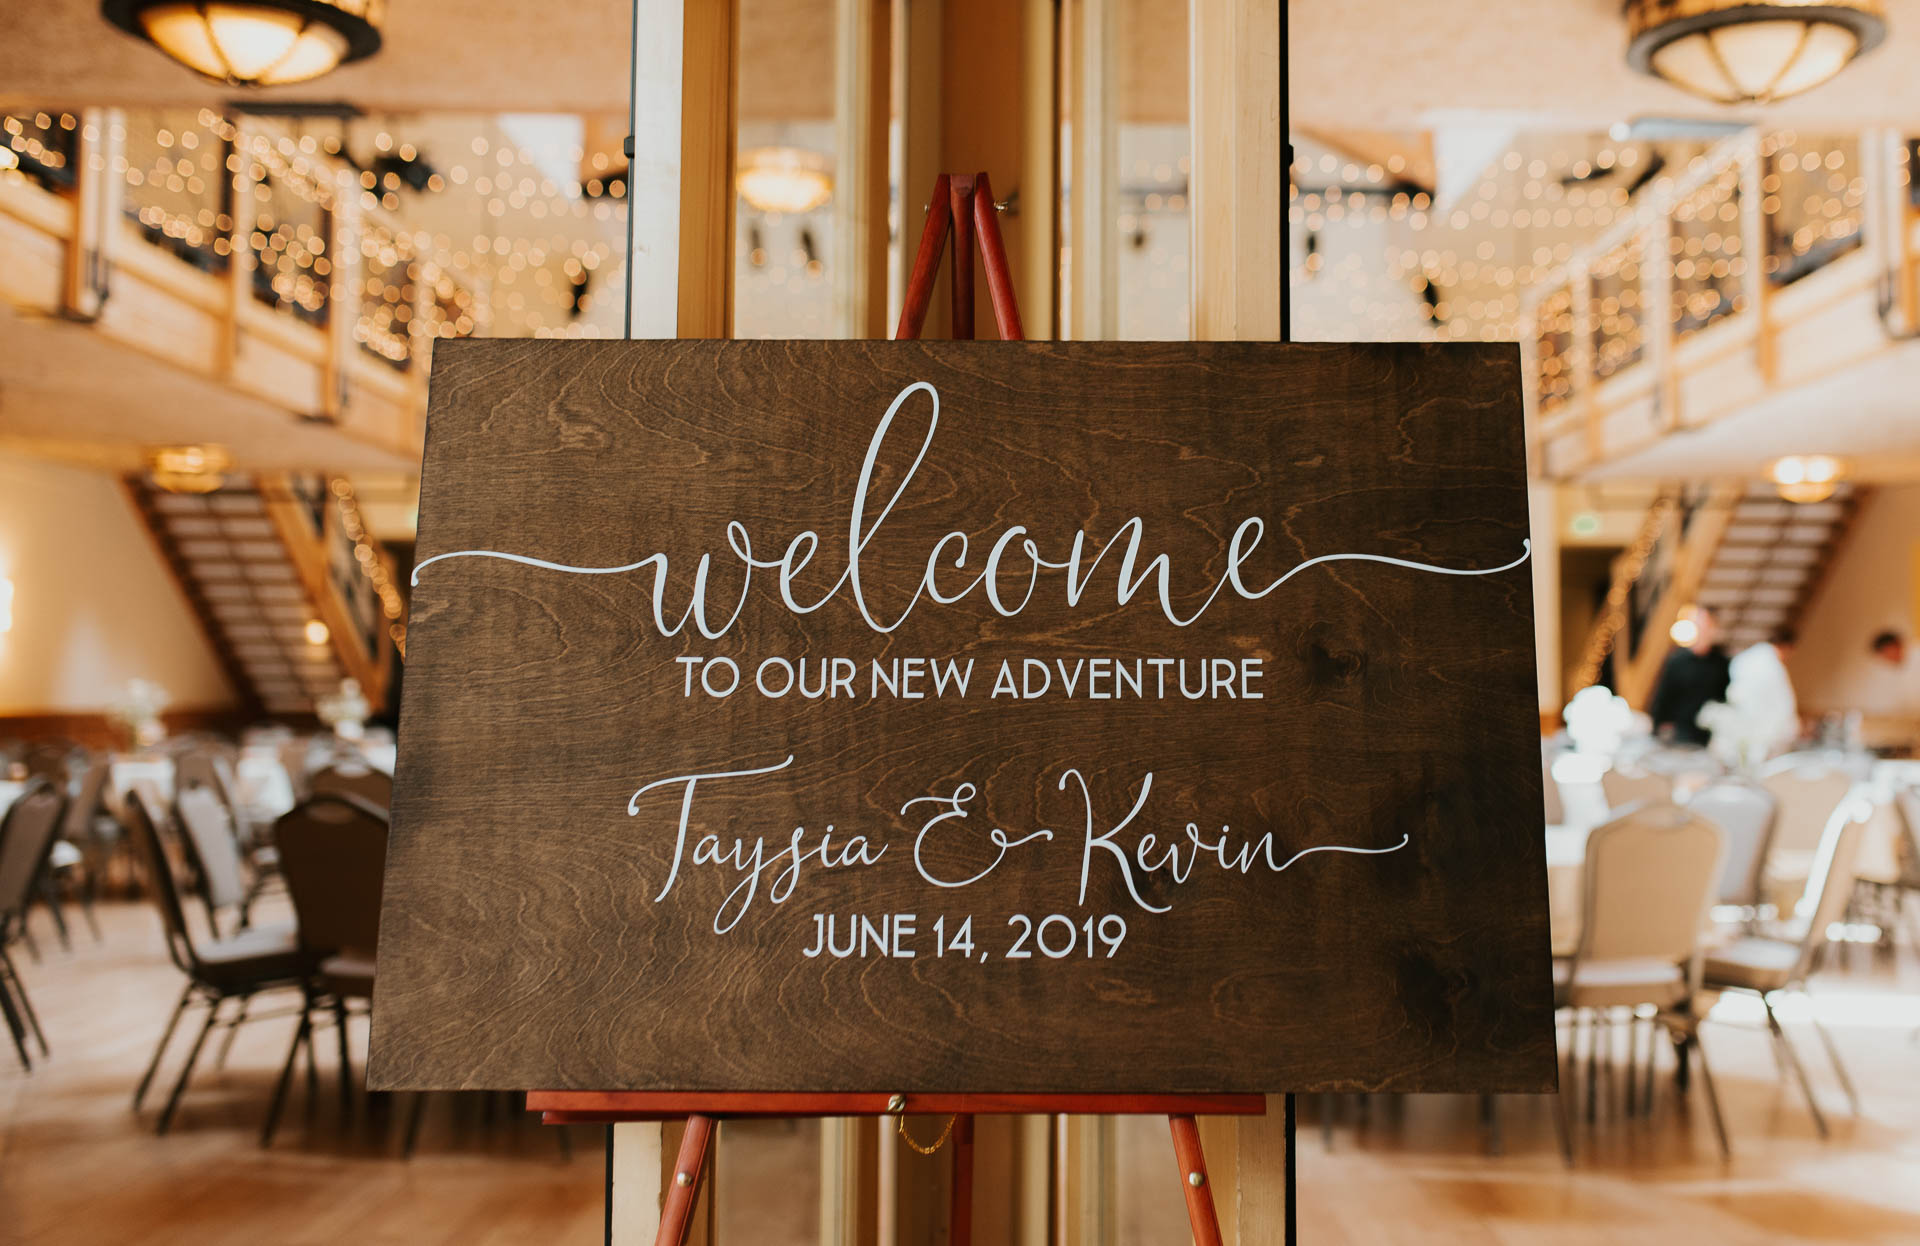 welcome
TO OUR NEW ADVENTURE
Taysia & Kevin
JUNE 14, 2019